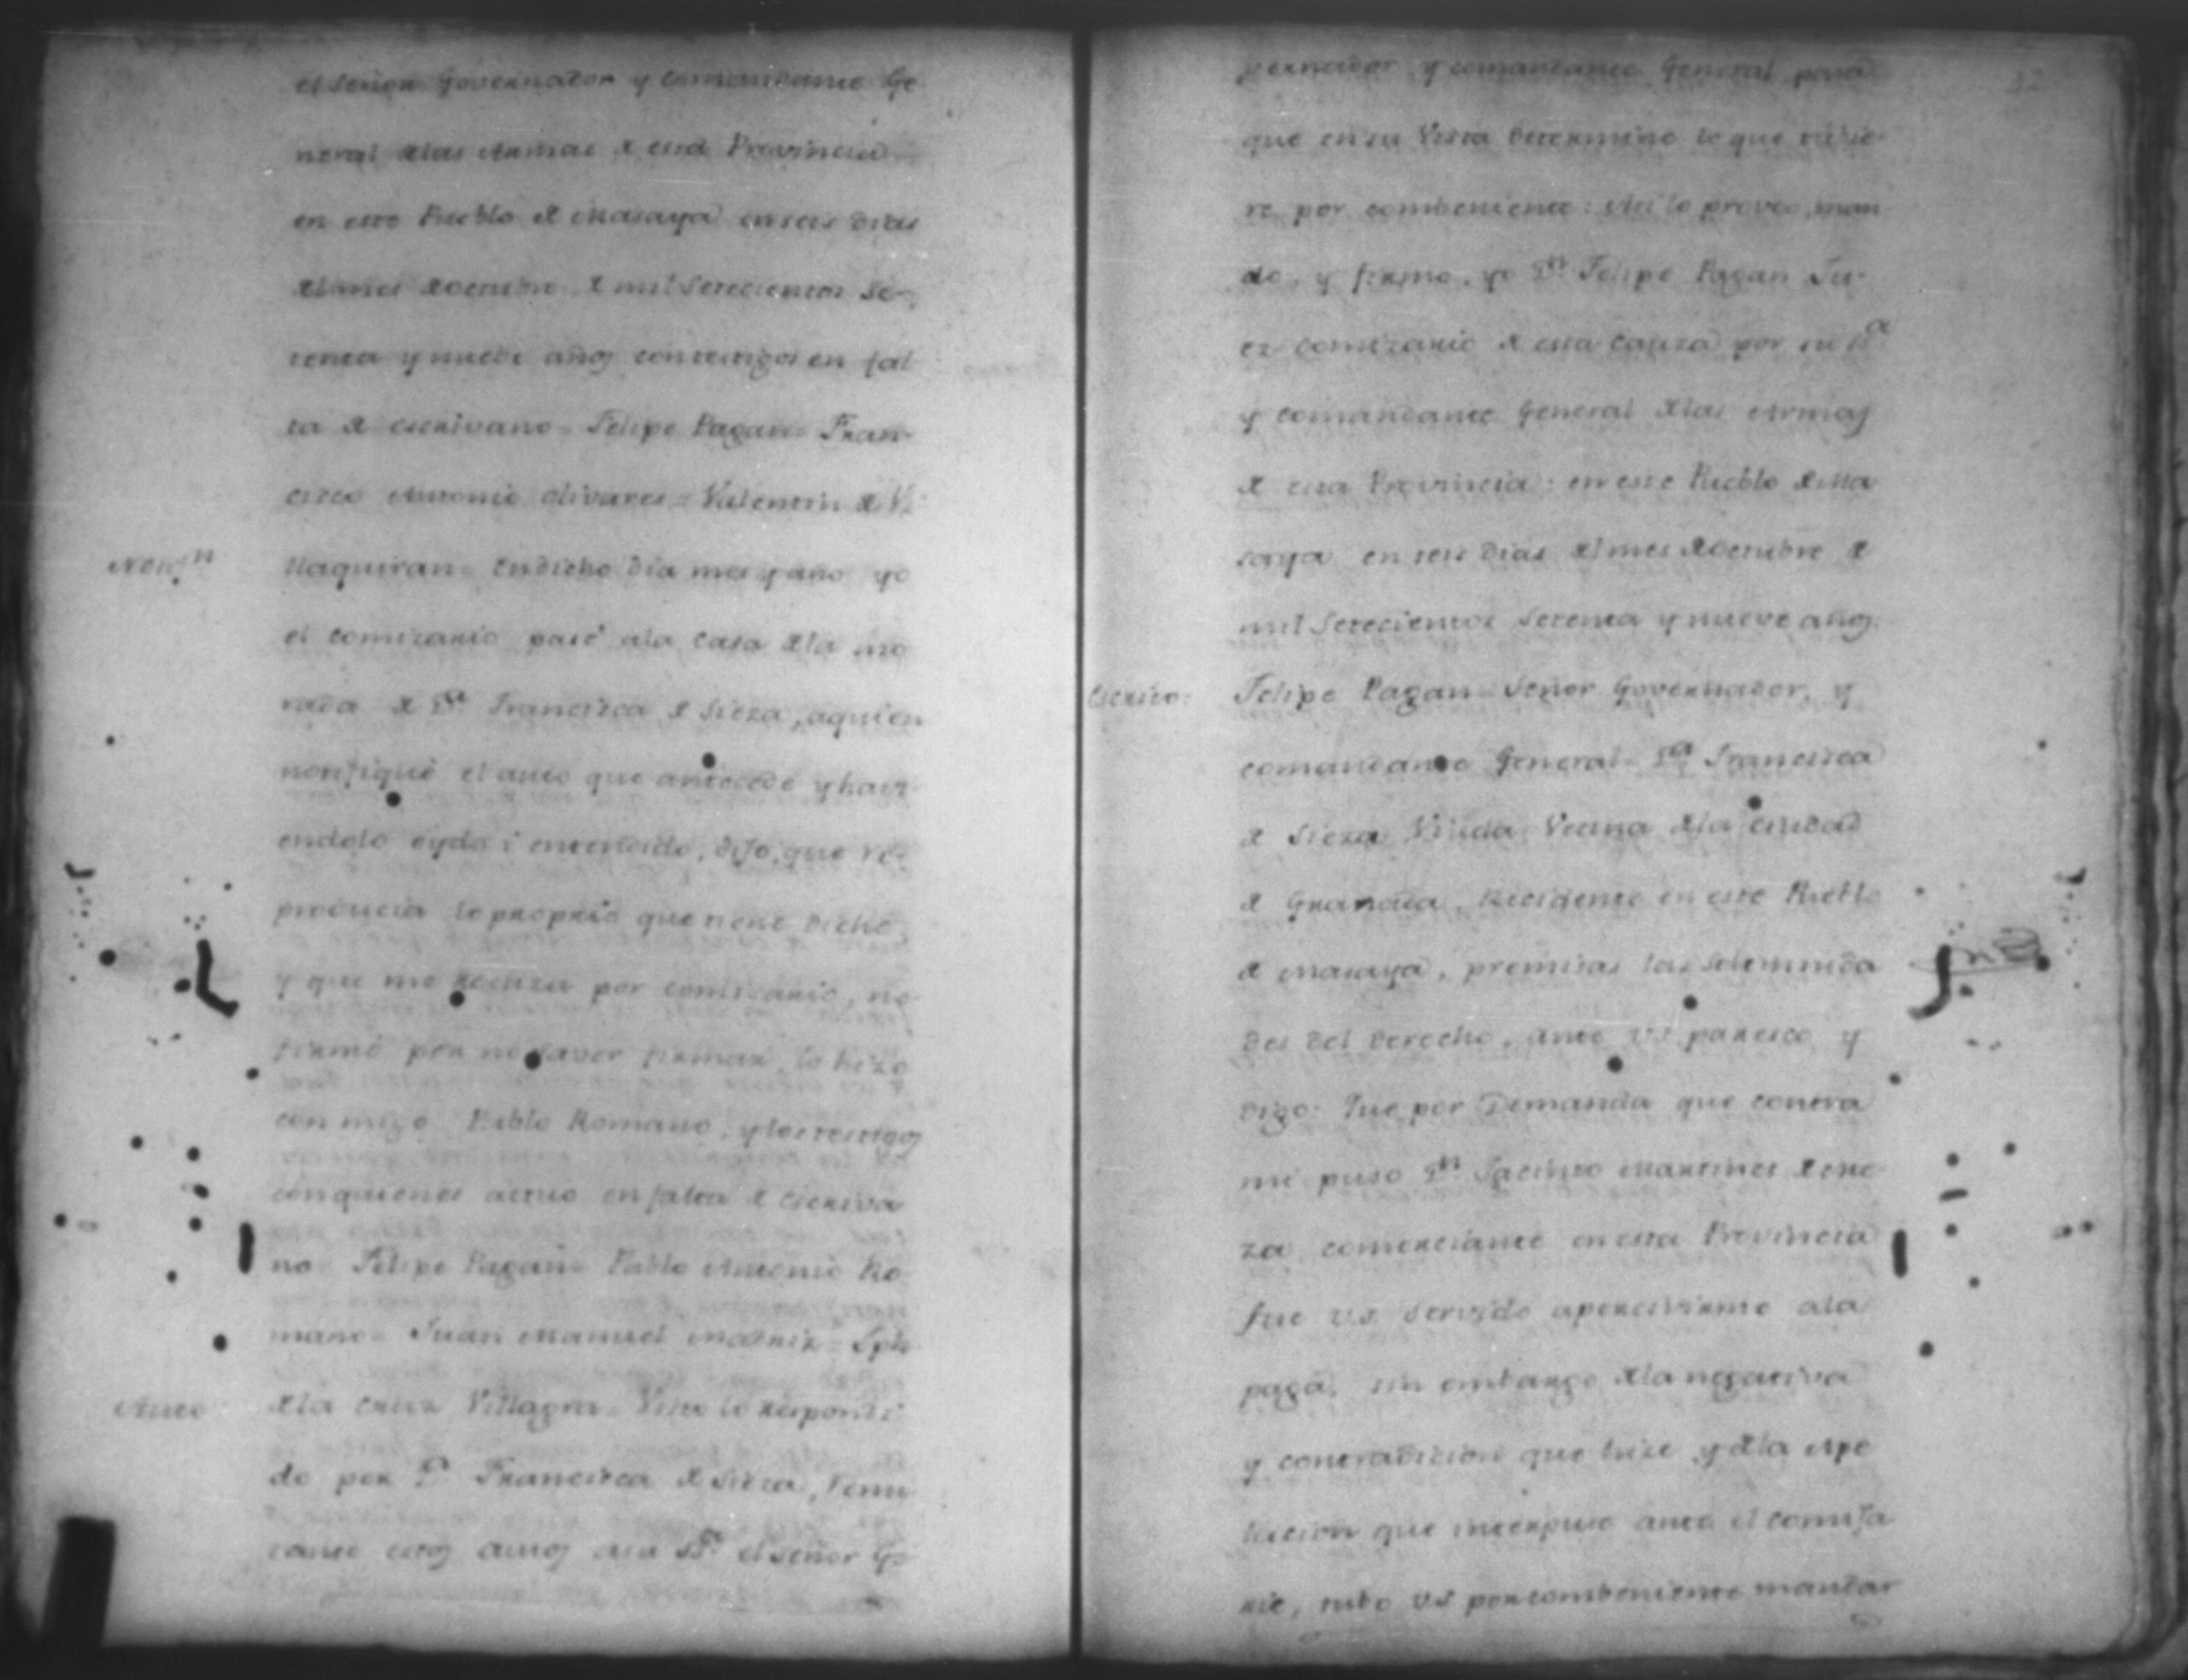 el Señor Governador y comandante Ge-
neral de las Armas de esta Provincia
en este Pueblo de Masaya en seis dias
del mes de octubre de mil Setecientos Se-
tenta y nueve años con testigos en fal-
ta de escrivano = Felipe Pagan = Fran-
cisco Antonio olivares = Valentin de Vi-
Notif.n
llaquiran = En dicho dia mes y año yo
el comizario pasé a la Casa de la mo
rada de D.a Francisca de Sieza, a quien
notifiqué el auto que antecede y havi-
endolo oydo i entendido, dijo, que re-
producia lo proprio que tiene dicho
y que me recuza por comisario, no
firmó por no saver firmar, lo hizo
con migo Pablo Romano, y los testigos
con quienes actuo en falta de Escriva
no = Felipe Pagan = Pablo Antonio Ro-
mano = Juan Manuel = Jph
Auto
de la Cruz Villagra = Visto lo respondi
do por D.a Francisca de Sieza, Remi
tanse estos autos a su SS.a el Señor Go
42
vernador y comandante General para
que en su Vista Determine lo que tubie-
re por combeniente: Asi lo proveo, man
do, y firmo, yo D.n Felipe Pagan Ju-
ez Comizario de esta Cauza por su SS.a
y comandante General de las Armas
de esta Provincia: en este Pueblo de Ma
saya en seis Dias del mes de Octubre de
mil Setecientos Setenta y nueve años.
Escrito:
Felipe Pagan = Señor Governador, y
comandante General = D.a Francisca
de Sieza Viuda Vecina de la ciudad
de Granada, Recidente en este Pueblo
de Masaya, premisas las Solemnida
des del Derecho, ante VS paresco y
Digo: Que por Demanda que contra
mi puso D.n Jacinto Martines de
za comerciante en esta Provincia
fue V.S. Servido apercivirme a la
paga, sin embargo de la negativa
y contradicion que hize y de la Ape
lacion que interpuse ante el Comisa
rio, tubo VS por combeniente mandar